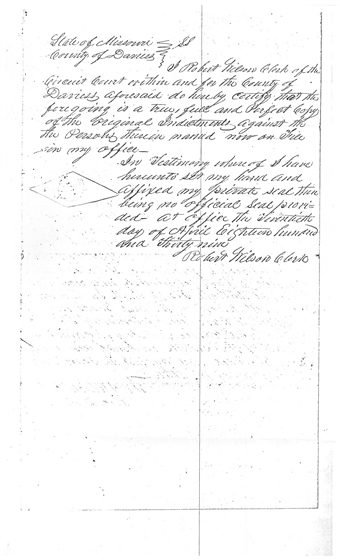 State of Missouri } Sct
County of Daviess }
I Robert Wilson Clerk of the
Circuit Court within and for the County of
Daviess, aforesaid do hereby certify that the
foregoing is a true, full and Perfect Copy
of the Original Indictments, against the
the Persons therein named now on File
in my office—
In Testimony where of I have
hereunto set my hand and
affixed my private seal there
being no official seal provi-
ded— at office the Twentieth
day of April Eighteen hundred
and thirty nine
Robert Wilson Clerk